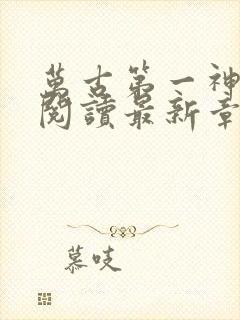 萬古第一神
閱讀最新章
慕吱